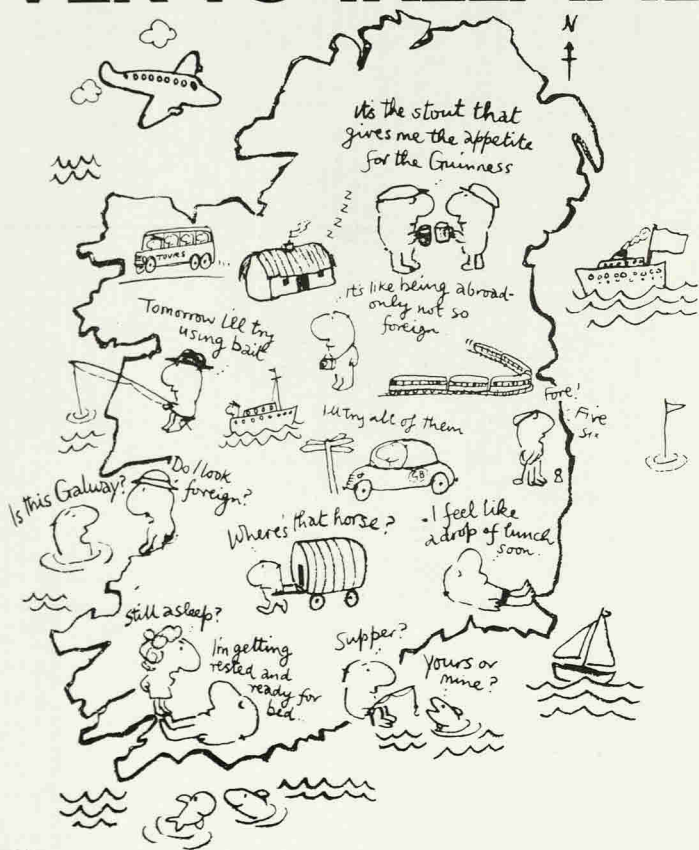 N
its the stout that
gives me the appetite
for the Guinness
z
z
z
z
TOURS
It's like being abroad-
only not so
foreign
Tomorrow i'll try
using bait
Fore!
Five
Six
I'll try all of them
GB
Is this Galway?
Do I look
foreign?
Where's that horse?
I feel like
a drop of lunch
soon.
Still asleep?
I'm getting
rested and
ready for
bed.
Supper?
Yours or
mine?